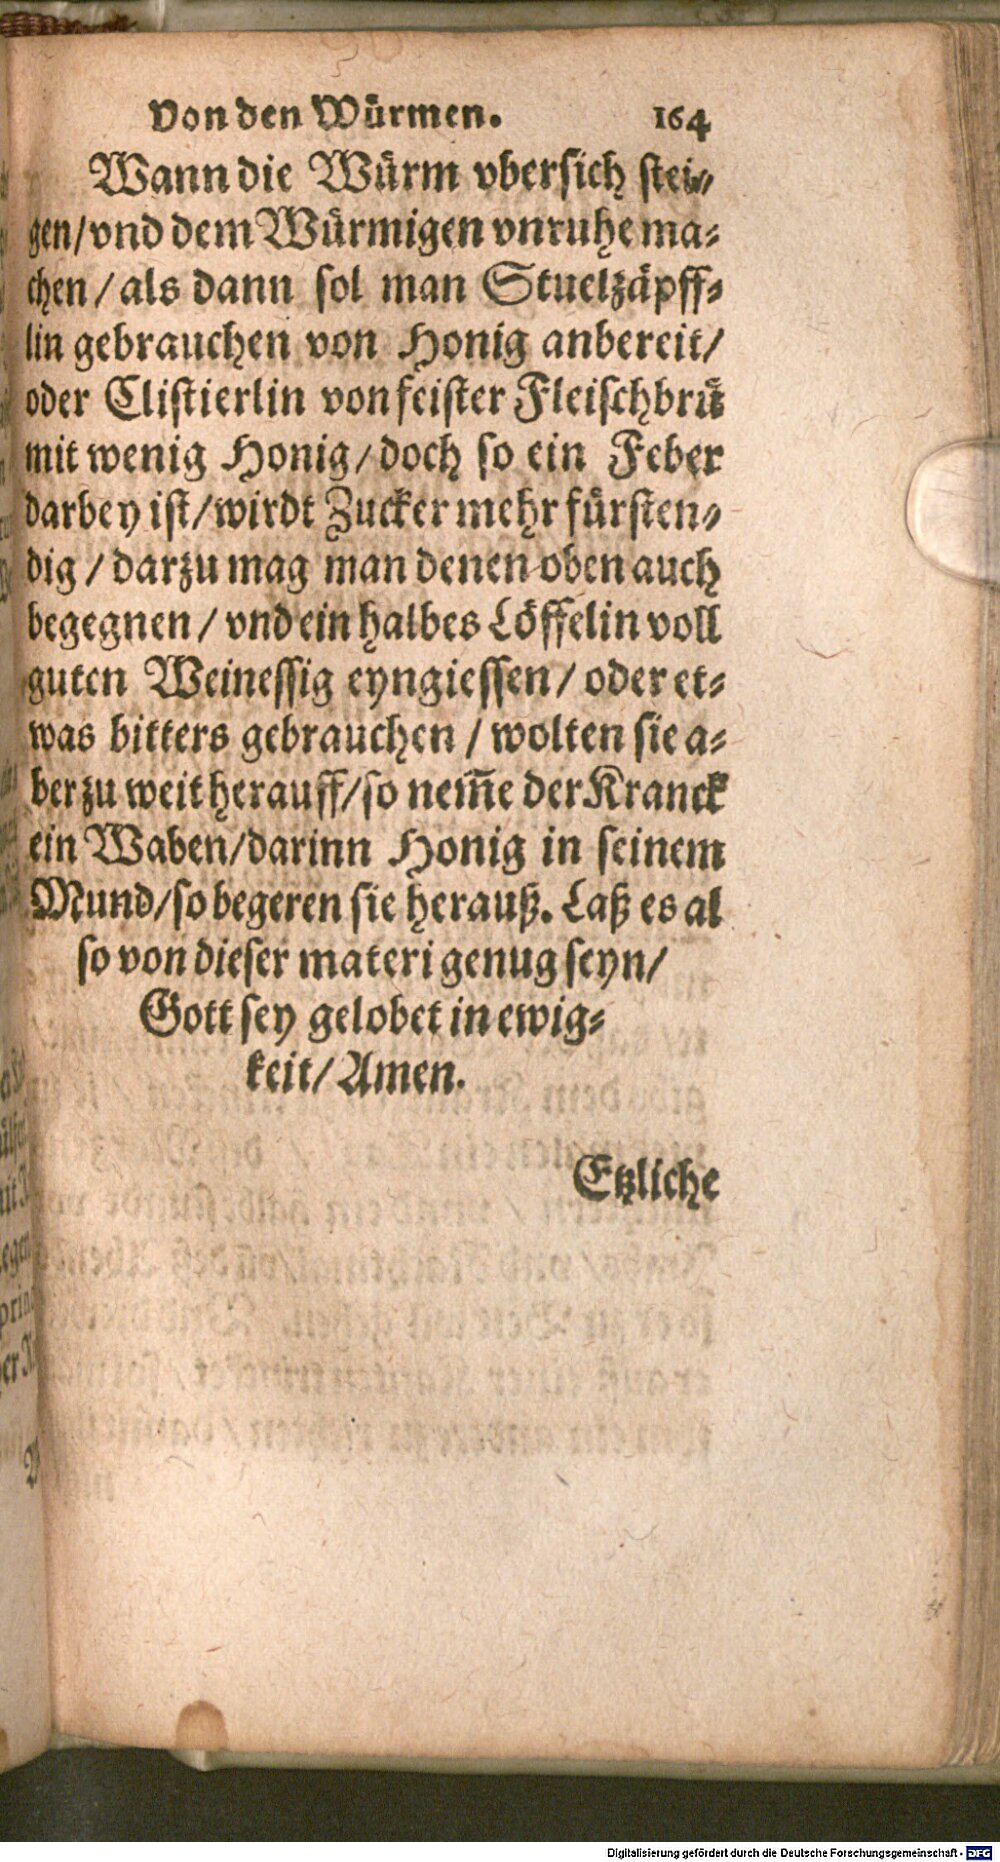 Von den Würmen. 164
Wann die Würm vbersich stei-
gen/ vnd dem Würmigen vnruhe ma-
chen / als dann sol man Stuelzäpff-
lin gebrauchen von Honig anbereit/
oder Clistierlin von feister Fleischbrü
mit wenig Honig / doch so ein Feber
darbey ist / wirdt Zucker mehr fürsten-
dig / darzu mag man denen oben auch
begegnen / vnd ein halbes Löffelin voll
guten Weinessig eyngiessen / oder et-
was bitters gebrauchen / wolten sie a-
ber zu weit herauff / so nem̃e der Kranck
ein Waben / darinn Honig in seinem
Mund / so begeren sie herauß. Laß es al
so von dieser materi genug seyn /
Gott sey gelobet in ewig-
keit / Amen.
Etzliche
Digitalisierung gefördert durch die Deutsche Forschungsgemeinschaft - DFG